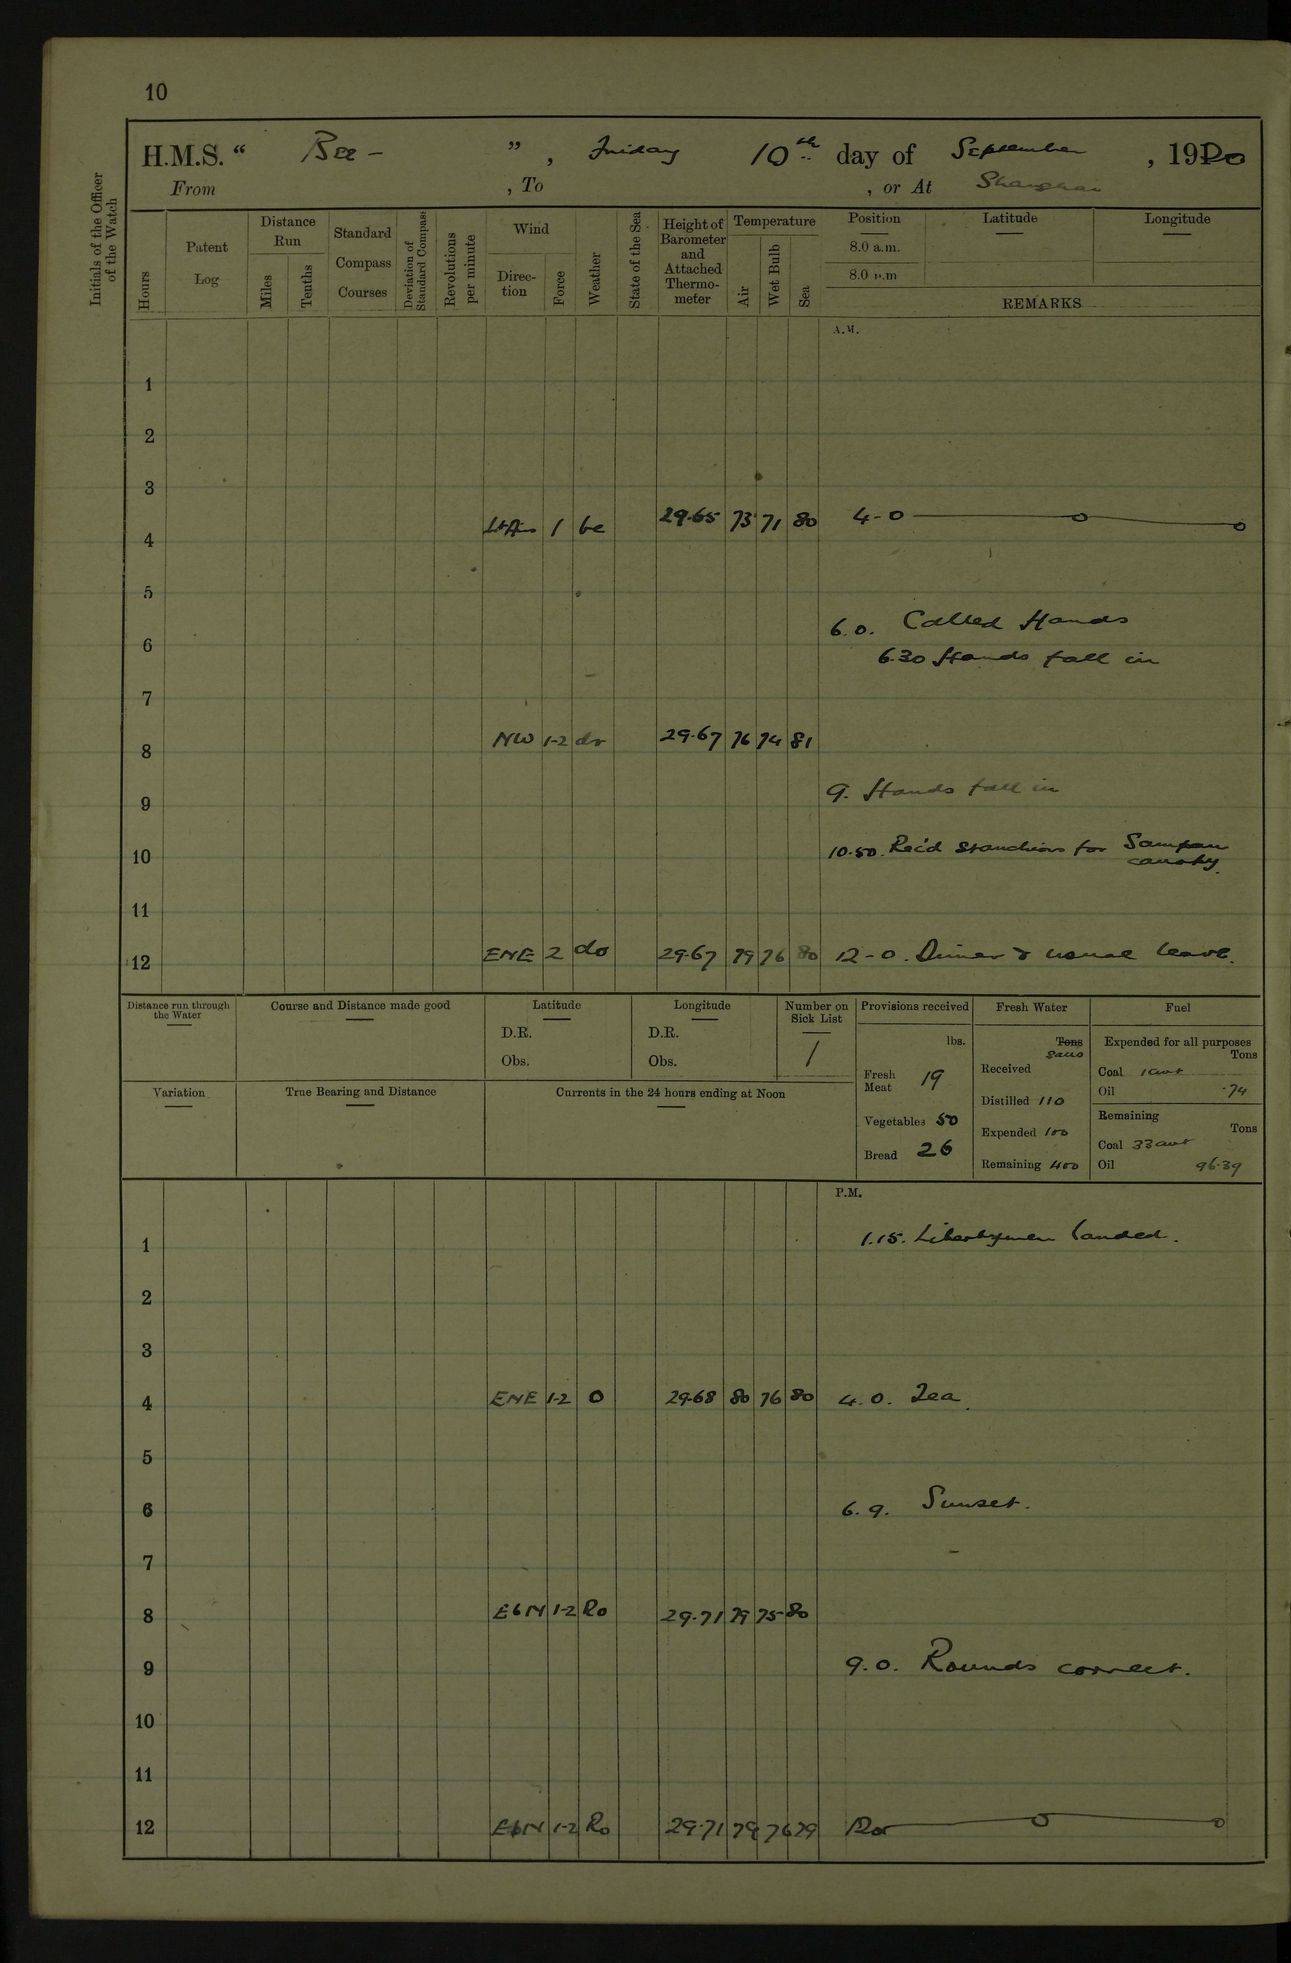 10
H.M.S. “ Bee - ” , Friday 10th day of September , 1920
From , To , or At Shanghai
Initials of the Officer of the Watch
Hours
Patent Log
Distance Run
Miles
Tenths
Standard Compass Courses
Deviation of Standard Compass
Revolutions per minute
Wind
Direction
Force
Weather
State of the Sea
Height of Barometer and Attached Thermometer
Temperature
Air
Wet Bulb
Sea
Position Latitude Longitude
8.0 a.m.
8.0 p.m
REMARKS
A.M.
1
2
3
4 Lt Airs 1 bc 29.65 73 71 80 4-0
5
6 6.0. Called Hands
6.30 Hands fall in
7
8 NW 1-2 do 29.67 76 74 81
9 9. Hands fall in
10 10.50. Rec'd stanchions for Sampan canopy.
11
12 ENE 2 do 29.67 79 76 80 12-0. Dinner & usual leave.
Distance run through the Water
Course and Distance made good
Latitude
D.R.
Obs.
Longitude
D.R.
Obs.
Number on Sick List
1
Provisions received
lbs.
Fresh Meat 19
Vegetables 50
Bread 26
Fresh Water
Tons
Galls
Received
Distilled 110
Expended 100
Remaining 400
Fuel
Expended for all purposes
Tons
Coal 1 cwt
Oil .74
Remaining
Tons
Coal 33 cwt
Oil 96.39
Variation
True Bearing and Distance
Currents in the 24 hours ending at Noon
P.M.
1 1.15. Libertymen landed.
2
3
4 ENE 1-2 O 29.68 80 76 80 4.0. Tea.
5
6 6.9. Sunset.
7
8 EbN 1-2 Ro 29.71 79 75 80
9 9.0. Rounds correct.
10
11
12 EbN 1-2 Ro 29.71 79 76 79